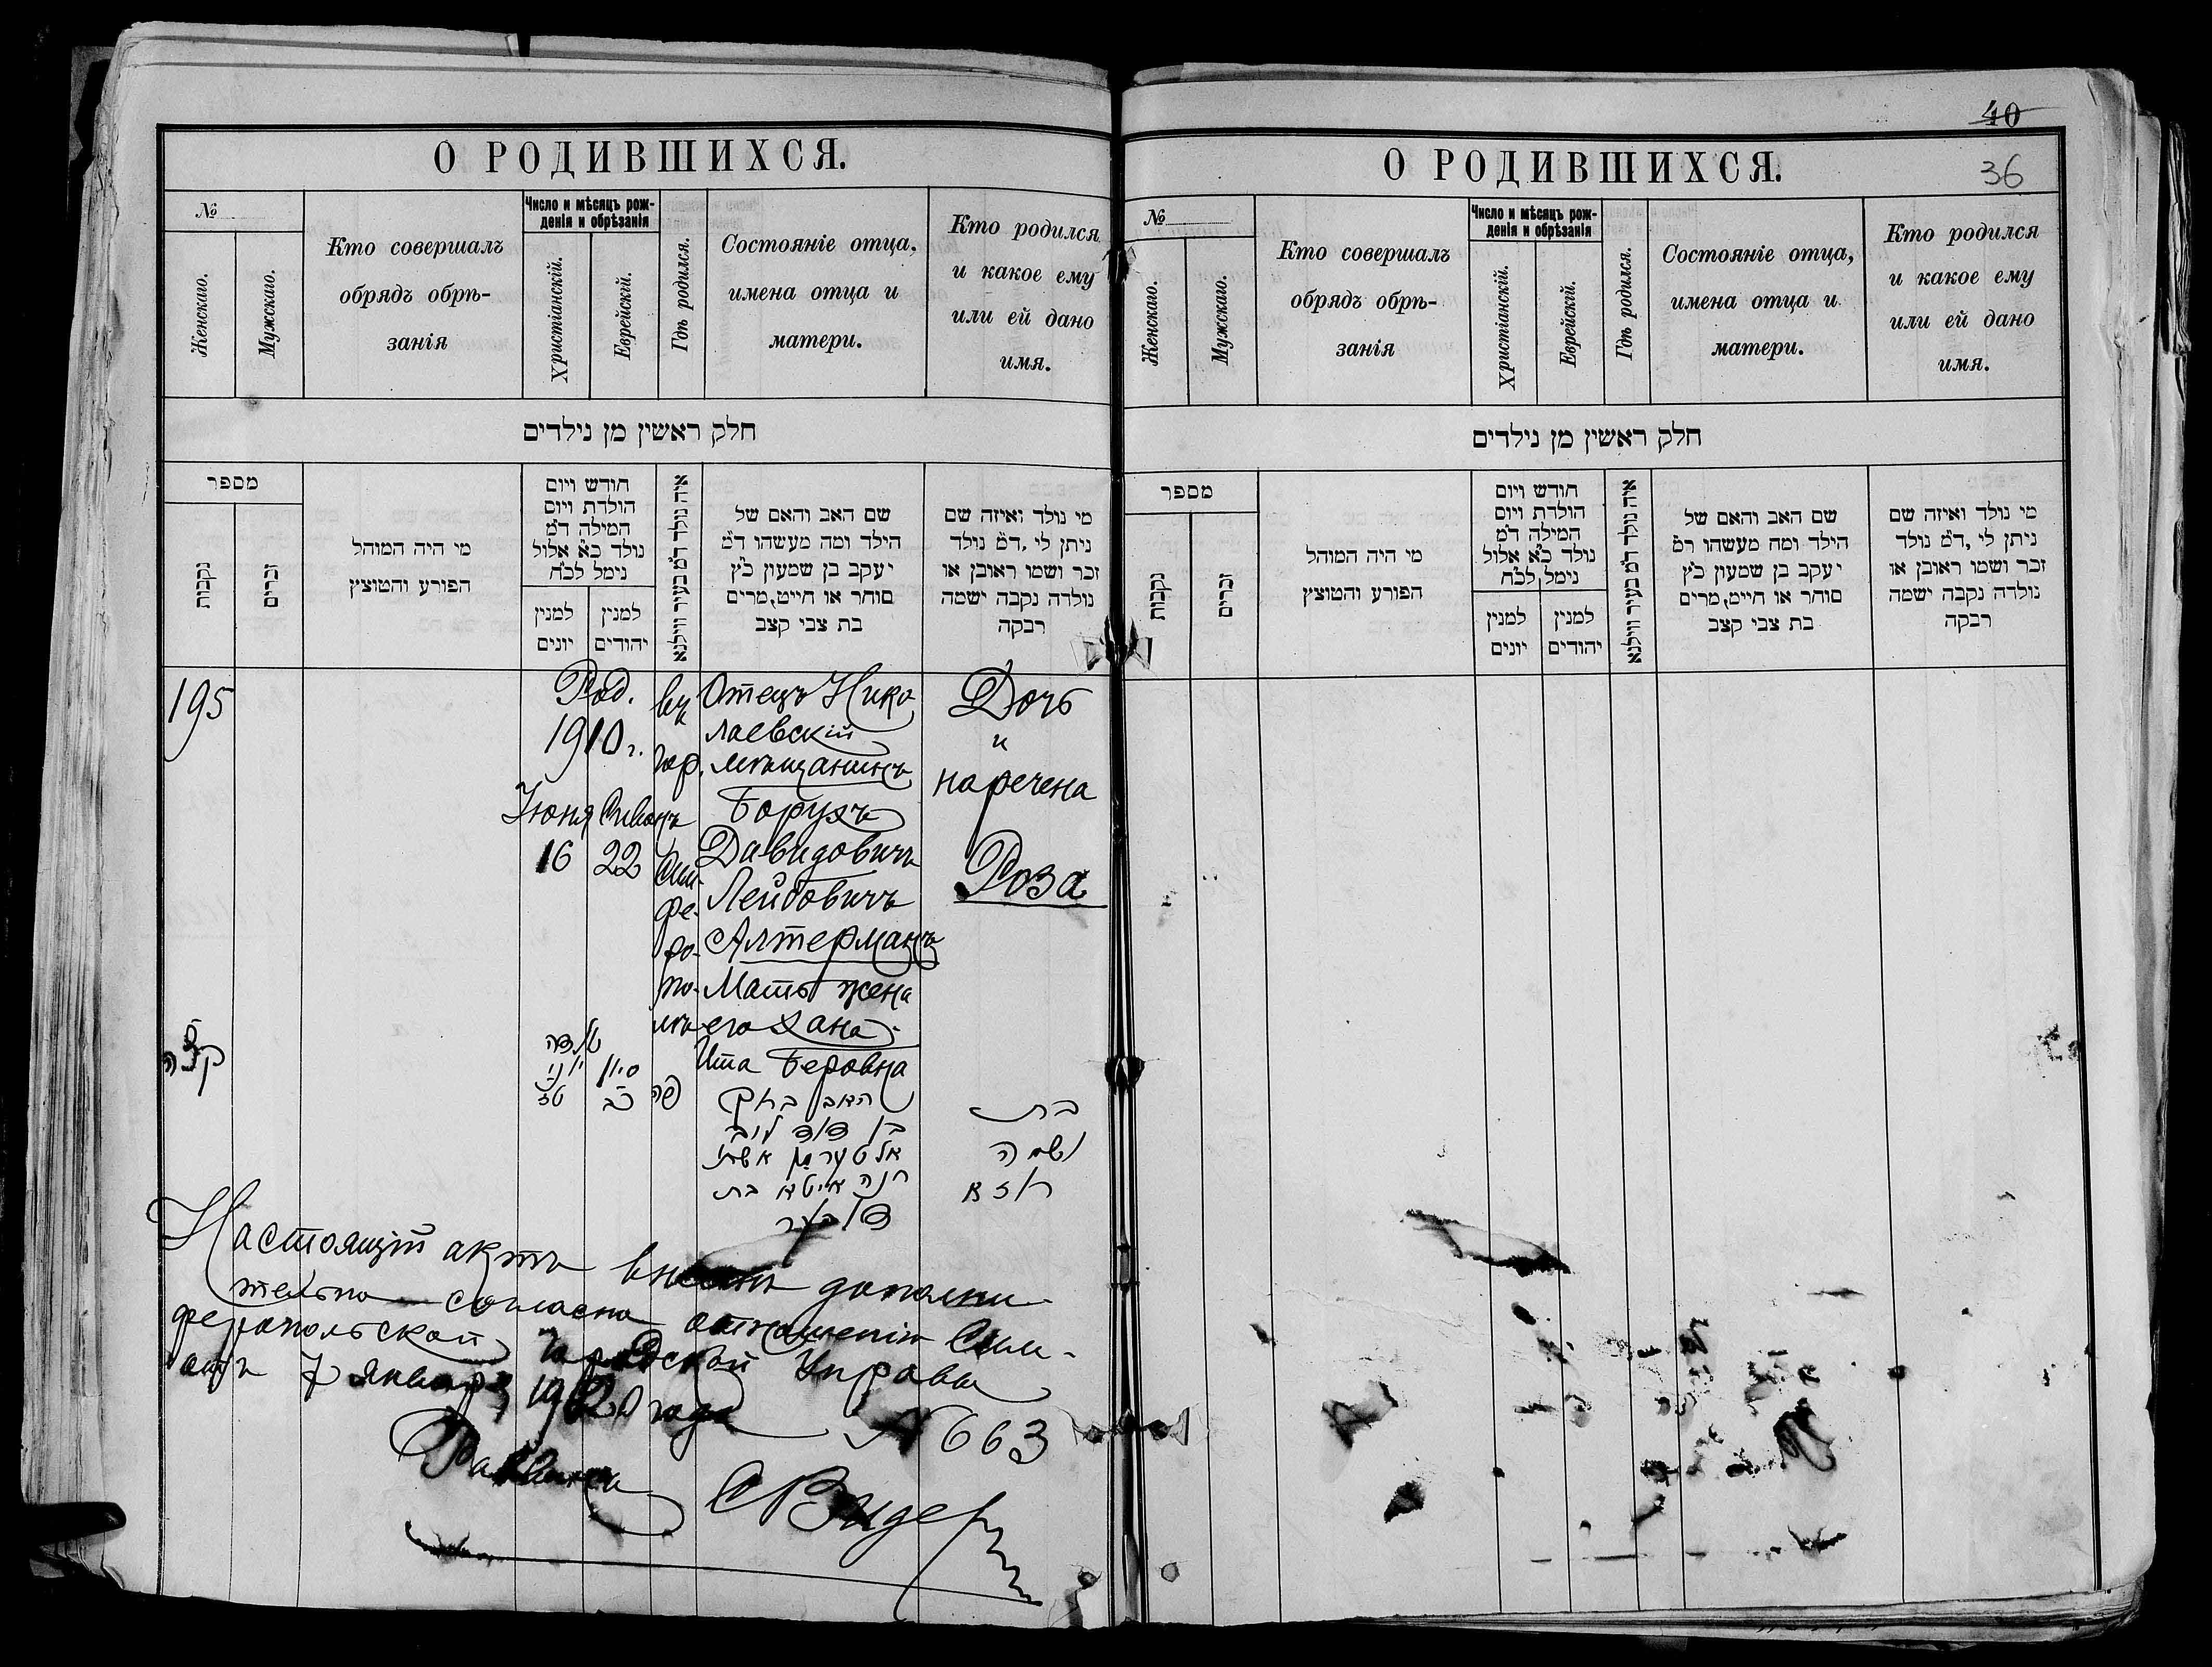 О РОДИВШИХСЯ.
№
Женскаго.
Мужскаго.
Кто совершалъ
обрядъ обрѣ-
занія
Число и мѣсяцъ рож-
денія и обрѣзанія
Христіанскій.
Еврейскій.
Гдѣ родился.
Состояніе отца,
имена отца и
матери.
Кто родился
и какое ему
или ей дано
имя.
חלק ראשין מן נילדים
מספר
נקבות
זכרים
מי היה המוהל
הפורע והמוצץ
חודש ויום
הולדת ויום
המילה ד״מ
נולד כ״א אלול
נימל לכ״ח
למנין
יונים
למנין
יהודים
איה נולד ד״מ בעיר ווילנא
שם האב והאם של
הילד ומה מעשהו ד״מ
יעקב בן שמעון כ״ץ
סוחר או חייט, מרים
בת צבי קצב
מי נולד ואיזה שם
ניתן לי, ד״מ נולד
זכר ושמו ראובן או
נולדה נקבה ישמה
רבקה
195
Род.
1910 г.
Июня
16
Сиванъ
22
въ
гор.
Сим-
фе-
ро-
по-
лѣ
Отецъ Нико
лаевскій
мѣщанинъ
Борухъ
Давидовичъ
Лейбовичъ
Алтерманъ
Мать жена
его Хана-
Ита Беровна
Дочь
и
наречена
Роза
קצה
יוני
טז
סיון
כב
פה
האב ברוך
בן דוד לייב
אלטערמן אשתו
חנה איטא בת
בת
ושמה
ראזא
Настоящій актъ внесенъ дополни-
тельно согласно отношенія Сим-
феропольской Городской Управы
отъ 7 января 1920 года № 663
Раввинъ
СВидер
О РОДИВШИХСЯ.
40
36
№
Женскаго.
Мужскаго.
Кто совершалъ
обрядъ обрѣ-
занія
Число и мѣсяцъ рож-
денія и обрѣзанія
Христіанскій.
Еврейскій.
Гдѣ родился.
Состояніе отца,
имена отца и
матери.
Кто родился
и какое ему
или ей дано
имя.
חלק ראשין מן נילדים
מספר
נקבות
זכרים
מי היה המוהל
הפורע והמוצץ
חודש ויום
הולדת ויום
המילה ד״מ
נולד כ״א אלול
נימל לכ״ח
למנין
יונים
למנין
יהודים
איה נולד ד״מ בעיר ווילנא
שם האב והאם של
הילד ומה מעשהו ד״מ
יעקב בן שמעון כ״ץ
סוחר או חייט, מרים
בת צבי קצב
מי נולד ואיזה שם
ניתן לי, ד״מ נולד
זכר ושמו ראובן או
נולדה נקבה ישמה
רבקה